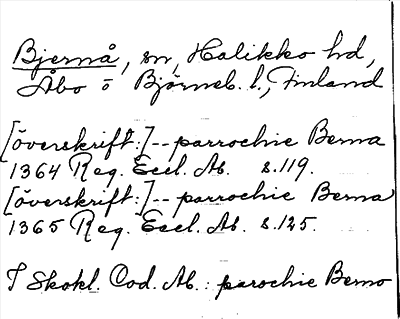 Bjernå, sn, Halikko hd,
Åbo o Björneb. l., Finland
[överskrift:] -- parrochie Berna
1364 Reg. Eccl. Ab. s. 119.
[överskrift:] -- parrochie Berna
1365 Reg. Eccl. Ab. s. 125.
I Skokl. Cod. Ab. parochie Berno